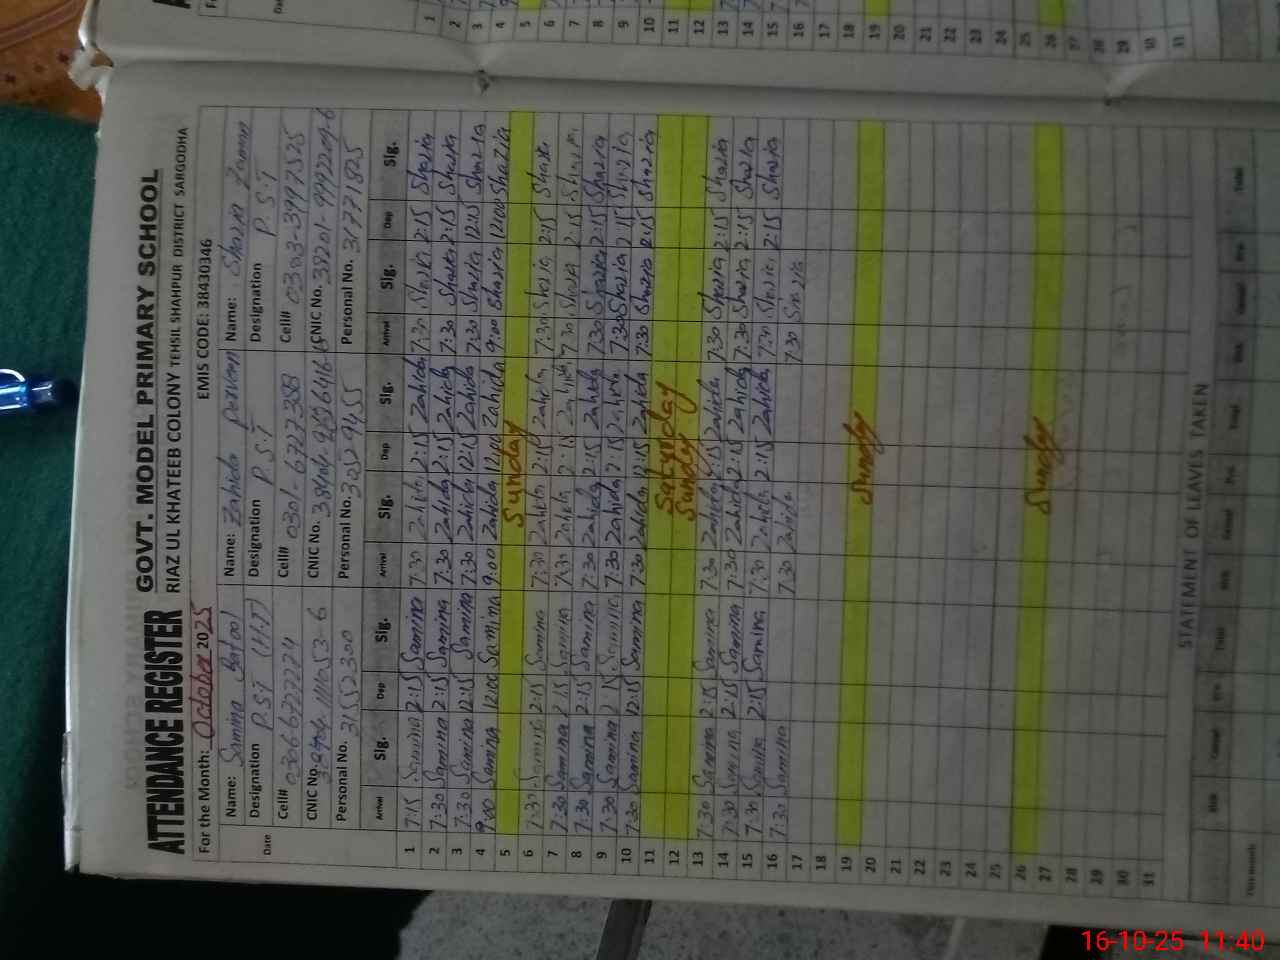 ATTENDANCE REGISTER
GOVT. MODEL PRIMARY SCHOOL
RIAZ UL KHATEEB COLONY TEHSIL SHAHPUR DISTRICT SARGODHA
For the Month: October 2025 EMIS CODE: 38430346
Name: Samina Batool Name: Zahida Perveen Name: Shazia Zaman
Date Designation P.ST Designation P.S.T Designation P.S.T
Cell# 03066727224 Cell# 0301-6727388 Cell# 0303-3997525
CNIC No. CNIC No. CNIC No. 38201-9992209-6
Personal No. 31552300 Personal No. 30529455 Personal No. 31771825
Arrival Sig. Dep Sig. Arrival Sig. Dep Sig. Arrival Sig. Dep Sig.
1 7:15 Samina 2:15 Samina 7:30 Zahida 2:15 Zahida 7:30 Shazia 2:15 Shazia
2 7:30 Samina 2:15 Samina 7:30 Zahida 2:15 Zahida 7:30 Shazia 2:15 Shazia
3 7:30 Samina 12:15 Samina 7:30 Zahida 12:15 Zahida 7:30 Shazia 12:15 Shazia
4 9:00 Samina 12:00 Samina 9:00 Zahida 12:00 Zahida 9:00 Shazia 12:00 Shazia
5 Sunday
6 7:30 Samina 2:15 Samina 7:30 Zahida 2:15 Zahida 7:30 Shazia 2:15 Shazia
7 7:30 Samina 2:15 Samina 7:30 Zahida 2:15 Zahida 7:30 Shazia 2:15 Shazia
8 7:30 Samina 2:15 Samina 7:30 Zahida 2:15 Zahida 7:30 Shazia 2:15 Shazia
9 7:30 Samina 2:15 Samina 7:30 Zahida 2:15 Zahida 7:30 Shazia 2:15 Shazia
10 7:30 Samina 12:15 Samina 7:30 Zahida 12:15 Zahida 7:30 Shazia 12:15 Shazia
11 Saturday
12 Sunday
13 7:30 Samina 2:15 Samina 7:30 Zahida 2:15 Zahida 7:30 Shazia 2:15 Shazia
14 7:30 Samina 2:15 Samina 7:30 Zahida 2:15 Zahida 7:30 Shazia 2:15 Shazia
15 7:30 Samina 2:15 Samina 7:30 Zahida 2:15 Zahida 7:30 Shazia 2:15 Shazia
16 7:30 Samina 7:30 Zahida 7:30 Shazia
17
18
19 Sunday
20
21
22
23
24
25
26 Sunday
27
28
29
30
31
STATEMENT OF LEAVES TAKEN
16-10-25 11:40